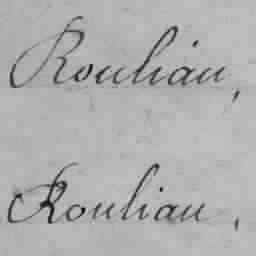 Rouliau,
Rouliau,